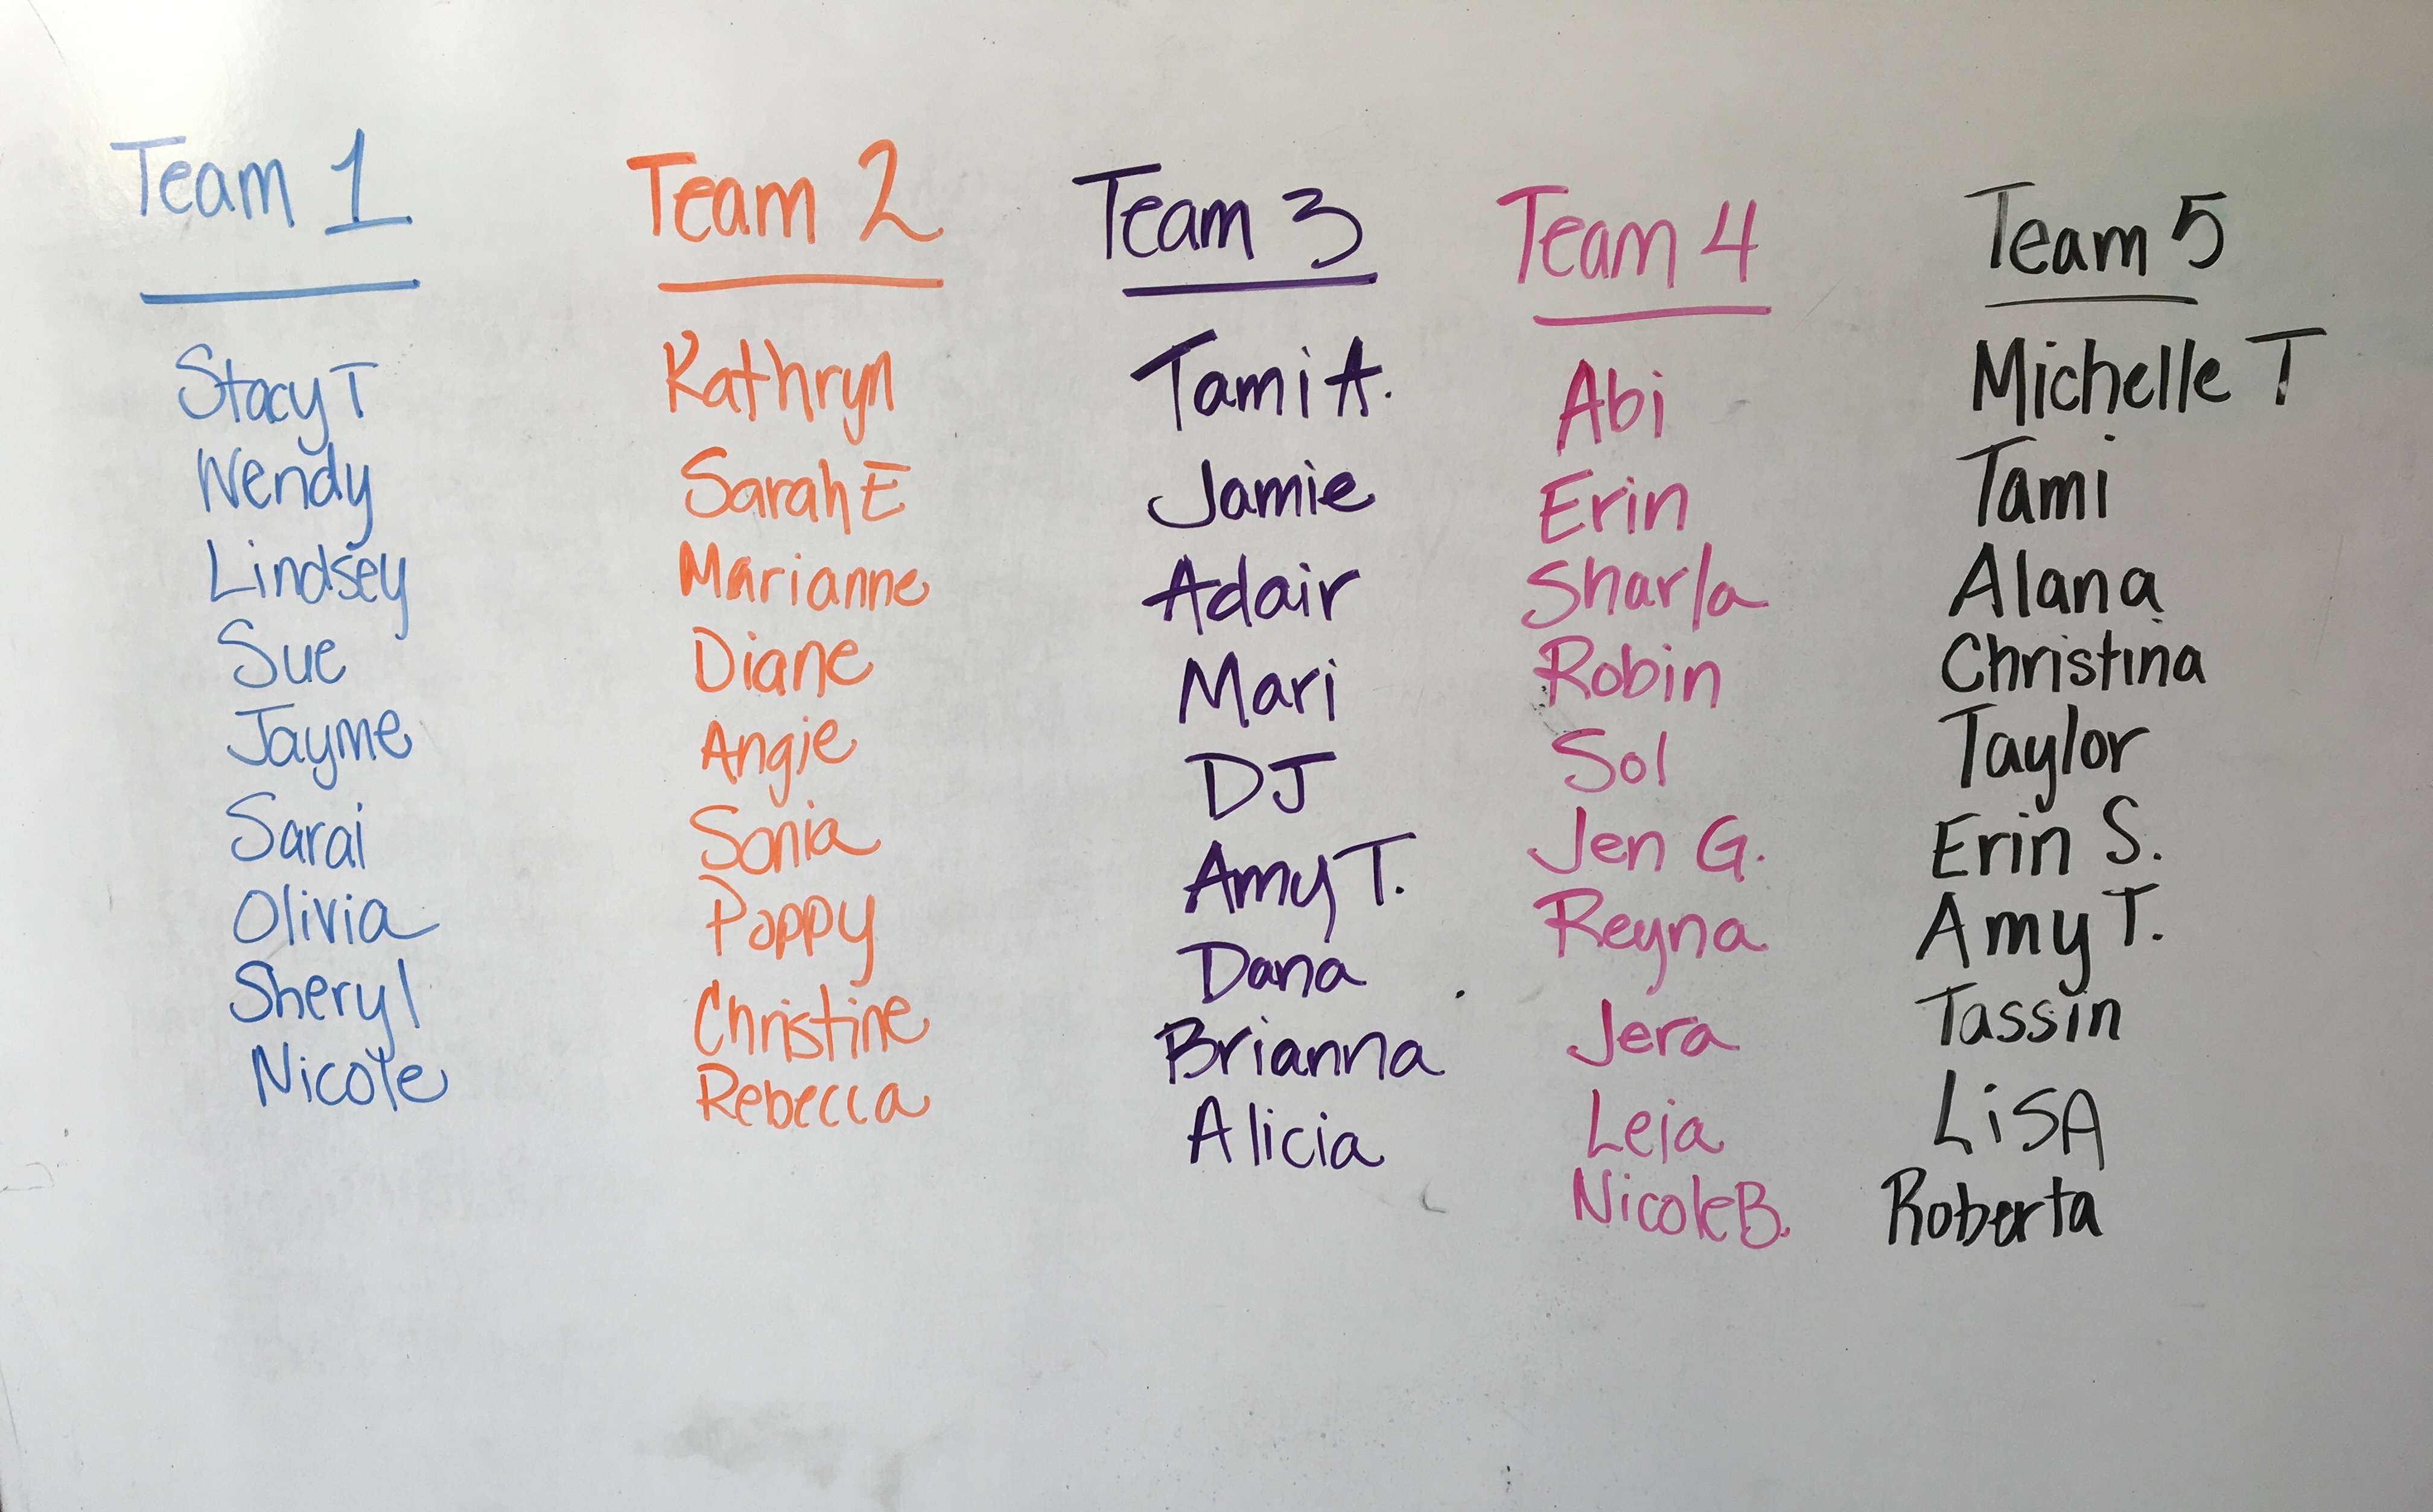 Team 1
Stacy T
Wendy
Lindsey
Sue
Jayme
Sarai
Olivia
Sheryl
Nicole
Team 2
Kathryn
Sarah E
Marianne
Diane
Angie
Sonia
Poppy
Christine
Rebecca
Team 3
Tami A.
Jamie
Adair
Mari
DJ
Amy T.
Dana
Brianna
Alicia
Team 4
Abi
Erin
Sharla
Robin
Sol
Jen G.
Reyna
Jera
Leia
Nicole B.
Team 5
Michelle T
Tami
Alana
Christina
Taylor
Erin S.
Amy T.
Tassin
LiSA
Roberta